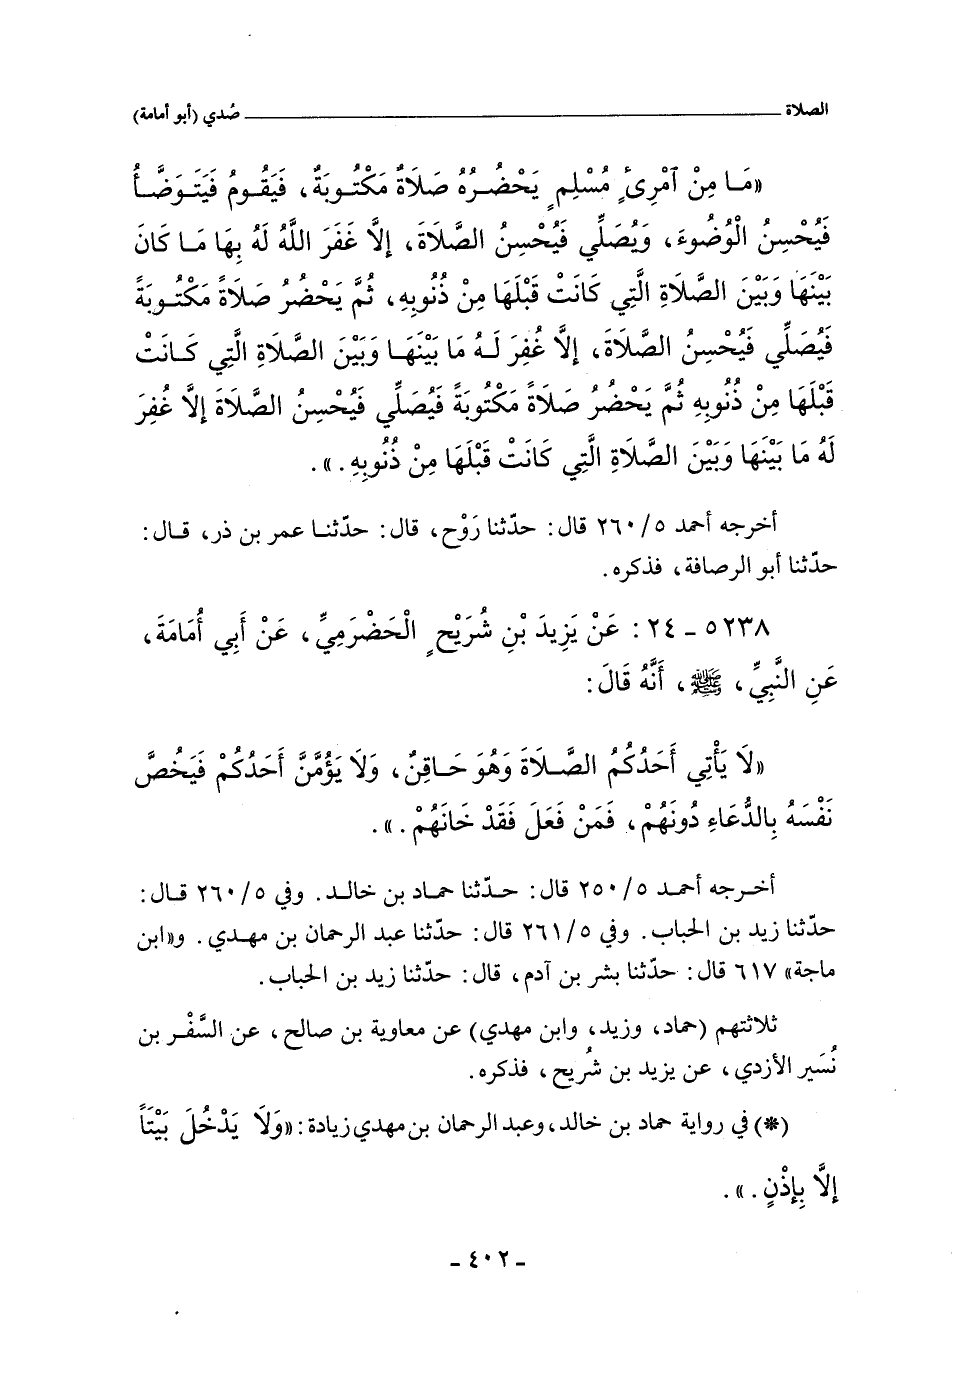 الصلاة ــــــــــ صُدي (أبو أمامة)
«مَا مِنْ آمْرِئٍ مُسْلِمٍ يَحْضُرُهُ صَلَاةٌ مَكْتُوبَةٌ، فَيَقُومُ فَيَتَوَضَّأُ
فَيُحْسِنُ الْوُضُوءَ، وَيُصَلِّي فَيُحْسِنُ الصَّلَاةَ، إلَّا غَفَرَ اللَّهُ لَهُ بِهَا مَا كَانَ
بَيْنَهَا وَبَيْنَ الصَّلَاةِ الَّتِي كَانَتْ قَبْلَهَا مِنْ ذُنُوبِهِ، ثُمَّ يَحْضُرُ صَلَاةً مَكْتُوبَةً
فَيُصَلِّي فَيُحْسِنُ الصَّلَاةَ، إلَّا غُفِرَ لَهُ مَا بَيْنَهَا وَبَيْنَ الصَّلَاةِ الَّتِي كَانَتْ
قَبْلَهَا مِنْ ذُنُوبِهِ ثُمَّ يَحْضُرُ صَلَاةً مَكْتُوبَةً فَيُصَلِّي فَيُحْسِنُ الصَّلَاةَ إلَّا غُفِرَ
لَهُ مَا بَيْنَهَا وَبَيْنَ الصَّلَاةِ الَّتِي كَانَتْ قَبْلَهَا مِنْ ذُنُوبِهِ.».
أخرجه أحمد ٢٦٠/٥ قال: حدّثنا رَوْح، قال: حدّثنا عمر بن ذر، قال:
حدّثنا أبو الرصافة، فذكره.
٥٢٣٨ - ٢٤: عَنْ يَزِيدَ بْنِ شُرَيْحٍ الْحَضْرَمِيِّ، عَنْ أَبِي أُمَامَةَ،
عَنِ النَّبِيِّ، ﷺ، أَنَّهُ قَالَ:
«لَا يَأْتِي أَحَدُكُمُ الصَّلَاةَ وَهُوَ حَاقِنٌ، وَلَا يَؤُمَّنَّ أَحَدُكُمْ فَيَخُصَّ
نَفْسَهُ بِالدُّعَاءِ دُونَهُمْ، فَمَنْ فَعَلَ فَقَدْ خَانَهُمْ.».
أخرجه أحمد ٢٥٠/٥ قال: حدّثنا حماد بن خالد. وفي ٢٦٠/٥ قال:
حدّثنا زيد بن الحباب. وفي ٢٦١/٥ قال: حدّثنا عبد الرحمان بن مهدي. و«ابن
ماجة» ٦١٧ قال: حدّثنا بشر بن آدم، قال: حدّثنا زيد بن الحباب.
ثلاثتهم (حماد، وزيد، وابن مهدي) عن معاوية بن صالح، عن السَّفْر بن
نُسَير الأزدي، عن يزيد بن شُريح، فذكره.
(*) في رواية حماد بن خالد، وعبد الرحمان بن مهدي زيادة: «وَلَا يَدْخُلَ بَيْتاً
إلَّا بِإذْنٍ.».
- ٤٠٢ -